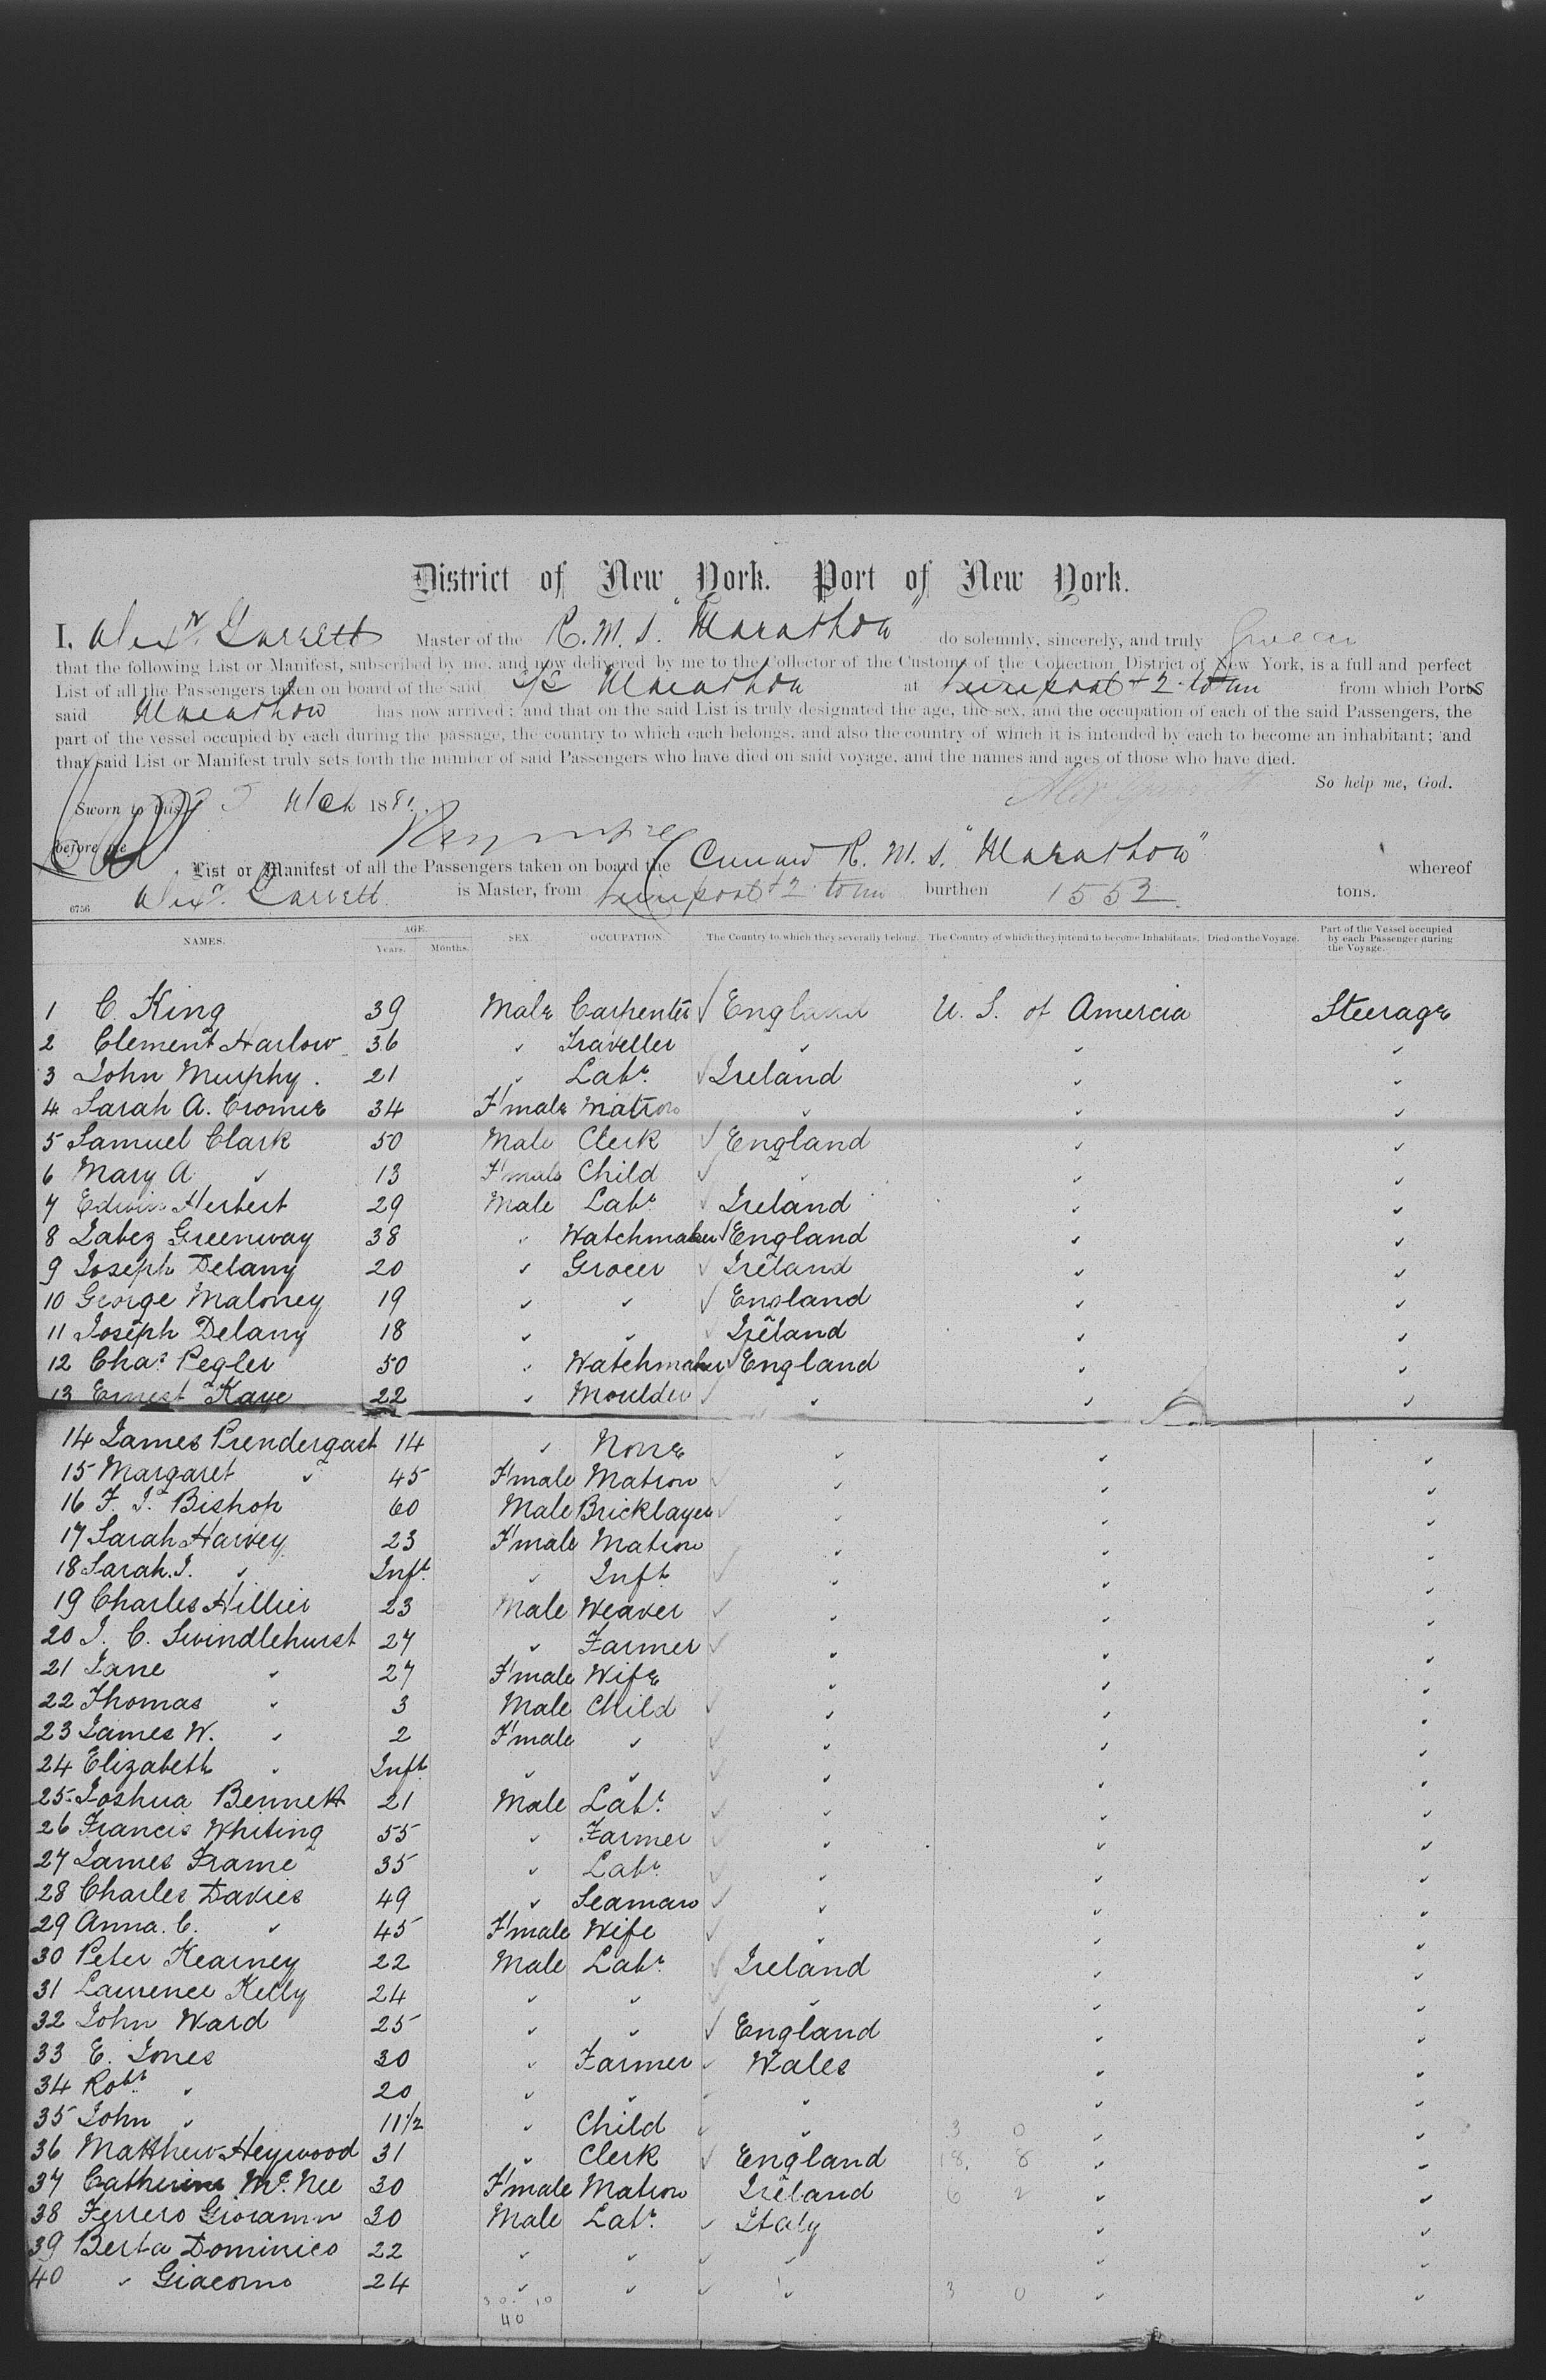 District of New York. Port of New York.
I, Alexr. Garrett Master of the R. M. S. "Marathon" do solemnly, sincerely, and truly swear
that the following List or Manifest, subscribed by me, and now delivered by me to the Collector of the Customs of the Collection District of New York, is a full and perfect
List of all the Passengers taken on board of the said S/S Marathon at Liverpool + Q. town from which Ports
said Marathon has now arrived; and that on the said List is truly designated the age, the sex, and the occupation of each of the said Passengers, the
part of the vessel occupied by each during the passage, the country to which each belongs, and also the country of which it is intended by each to become an inhabitant; and
that said List or Manifest truly sets forth the number of said Passengers who have died on said voyage, and the names and ages of those who have died.
So help me, God.
Sworn to this Mch 188
Alexr Garrett
before me
List or Manifest of all the Passengers taken on board the Cunard R. M. S. "Marathon" whereof
Alexr. Garrett is Master, from Liverpool + Q. town burthen 1552 tons.
6756
NAMES. AGE. Years. Months. SEX. OCCUPATION. The Country to which they severally belong. The Country of which they intend to become Inhabitants. Died on the Voyage. Part of the Vessel occupied by each Passenger during the Voyage.
1 C. King 39 Male Carpenter ✓ England U. S. of Amercia Steerage
2 Clement Harlow 36 " Traveller " " "
3 John Murphy. 21 " Labr. ✓ Ireland " "
4 Sarah A. Cromie 34 F'male Matron " " "
5 Samuel Clark 50 Male Clerk ✓ England " "
6 Mary A " 13 F'male Child ✓ " " "
7 Edwin Herbert 29 Male Labr ✓ Ireland " "
8 Jabez Greenway 38 " Watchmaker ✓ England " "
9 Joseph Delany 20 " Grocer ✓ Ireland " "
10 George Maloney 19 " " ✓ England " "
11 Joseph Delany 18 " " ✓ Ireland " "
12 Chas Pegler 50 " Watchmaker ✓ England " "
13 Ernest Kaye 22 " Moulder ✓ " " "
14 James Prendergast 14 " None " " "
15 Margaret " 45 F'male Matron ✓ " " "
16 F. J. Bishop 60 Male Bricklayer ✓ " " "
17 Sarah Harvey 23 F'male Matron " " "
18 Sarah. J. " Inft. " Inft ✓ " " "
19 Charles Hillier 23 Male Weaver ✓ " " "
20 J. C. Swindlehurst 27 " Farmer ✓ " " "
21 Jane " 27 F'male Wife " " "
22 Thomas " 3 Male Child ✓ " " "
23 James W. " 2 F'male " ✓ " " "
24 Elizabeth " Inft " " ✓ " " "
25 Joshua Bennett 21 Male Labr. ✓ " " "
26 Francis Whiting 55 " Farmer ✓ " " "
27 James Frame 35 " Labr ✓ " " "
28 Charles Davies 49 " Seaman ✓ " " "
29 Anna. C. " 45 F'male Wife ✓ " " "
30 Peter Kearney 22 Male Labr. ✓ Ireland " "
31 Laurence Kelly 24 " " ✓ " " "
32 John Ward 25 " " ✓ England " "
33 E. Jones 30 " Farmer ✓ Wales " "
34 Robt. " 20 " " ✓ " " "
35 John " 11½ " Child ✓ " 3 0 " "
36 Matthew Heywood 31 " Clerk ✓ England 18. 8 " "
37 Catherine Mc. Nee 30 F'male Matron Ireland 6 2 " "
38 Ferrero Giovanni 30 Male Labr. ✓ Italy " "
39 Berta Dominico 22 " " ✓ " " "
40 " Giacomo 24 " " ✓ " 3 0 " "
30. 10
40